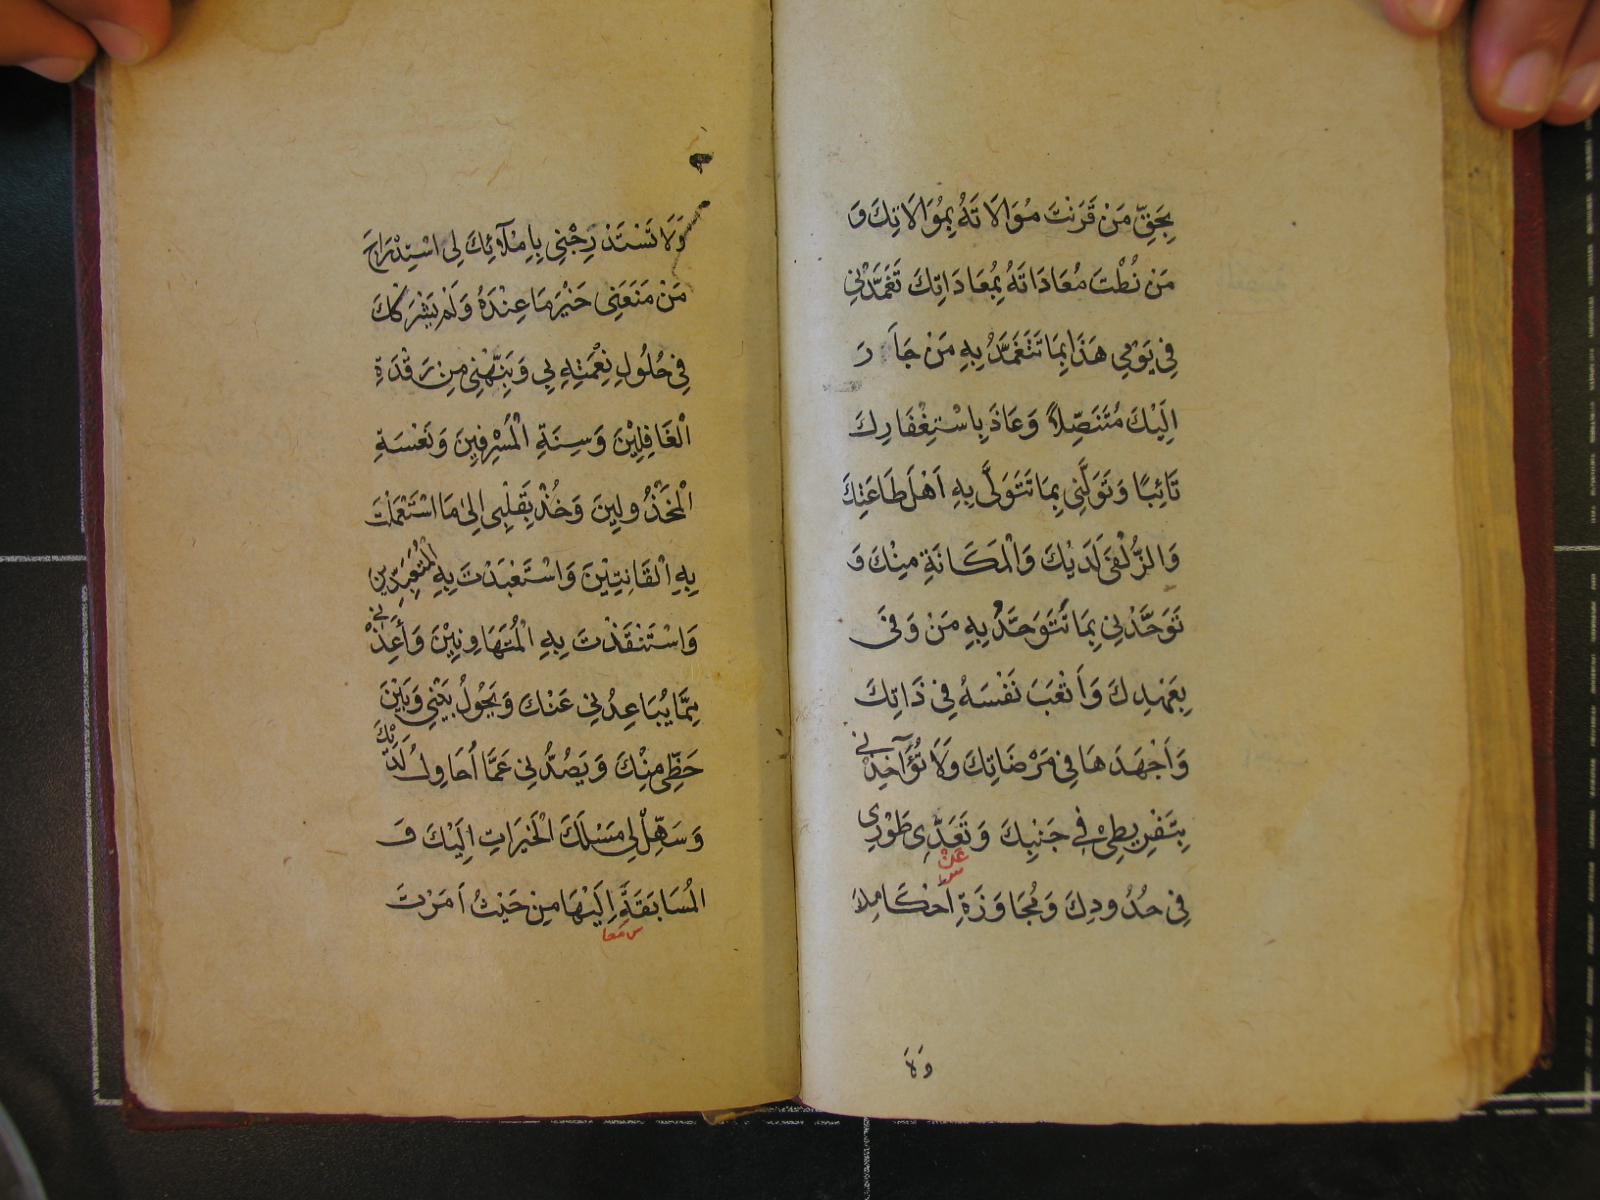 بِحَقِّ مَنْ قَرَنْتَ مُوَالَاتَهُ بِمُوَالَاتِكَ وَ
مَنْ نُطْتَ مُعَادَاتَهُ بِمُعَادَاتِكَ تَغَمَّدْنِي
فِي يَوْمِي هَذَا بِمَا تَتَغَمَّدُ بِهِ مَنْ جَاَرَ
اِلَيْكَ مُتَنَصِّلًا وَعَاذَ بِاسْتِغْفَارِكَ
تَائِبًا وَتَوَلَّنِي بِمَا تَتَوَلَّى بِهِ اَهْلَ طَاعَتِكَ
وَالزُّلْفَى لَدَيْكَ وَالْمَكَانَةِ مِنْكَ وَ
تَوَحَّدْنِي بِمَا تَتَوَحَّدُ بِهِ مَنْ وَفَى
بِعَهْدِكَ وَاَتْعَبَ نَفْسَهُ فِي ذَاتِكَ
وَاَجْهَدَهَا فِي مَرْضَاتِكَ وَلَا تُؤَآخِذْنِي
بِتَفْرِيطِيْ فِي جَنْبِكَ وَتَعَدِّي طَوْرِي
عَنْ
فِي حُدُودِكَ وَمُجَاوَزَةِ اَحْكَامِكَ
وَلَا
وَلَا تَسْتَدْرِجْنِي بِاِمْلَآئِكَ لِي اسْتِدْرَاجَ
مَنْ مَنَعَنِي خَيْرَ مَا عِنْدَهُ وَلَمْ يَشْرَكْكَ
فِي حُلُولِ نِعْمَتِهِ بِي وَنَبِّهْنِي مِنْ رَقْدَةِ
الْغَافِلِيْنَ وَسِنَةِ الْمُسْرِفِينَ وَنَعْسَةِ
الْمَخْذُولِينَ وَخُذْ بِقَلْبِي اِلَى مَا اسْتَعْمَلْتَ
بِهِ الْقَانِتِيْنَ وَاسْتَعْبَدْتَ بِهِ الْمُتَعَبِّدِينَ
وَاسْتَنْقَذْتَ بِهِ الْمُتَهَاوِنِيْنَ وَأَعِذْنِي
مِمَّا يُبَاعِدُنِي عَنْكَ وَيَحُولُ بَيْنِي وَبَيْنَ
حَظِّي مِنْكَ وَيَصُدُّنِي عَمَّا اُحَاوِلُ لَدَيْكَ
وَسَهِّلْ لِي مَسْلَكَ الْخَيْرَاتِ اِلَيْكَ وَ
الْمُسَابَقَةَ اِلَيْهَا مِنْ حَيْثُ اَمَرْتَ
س معا